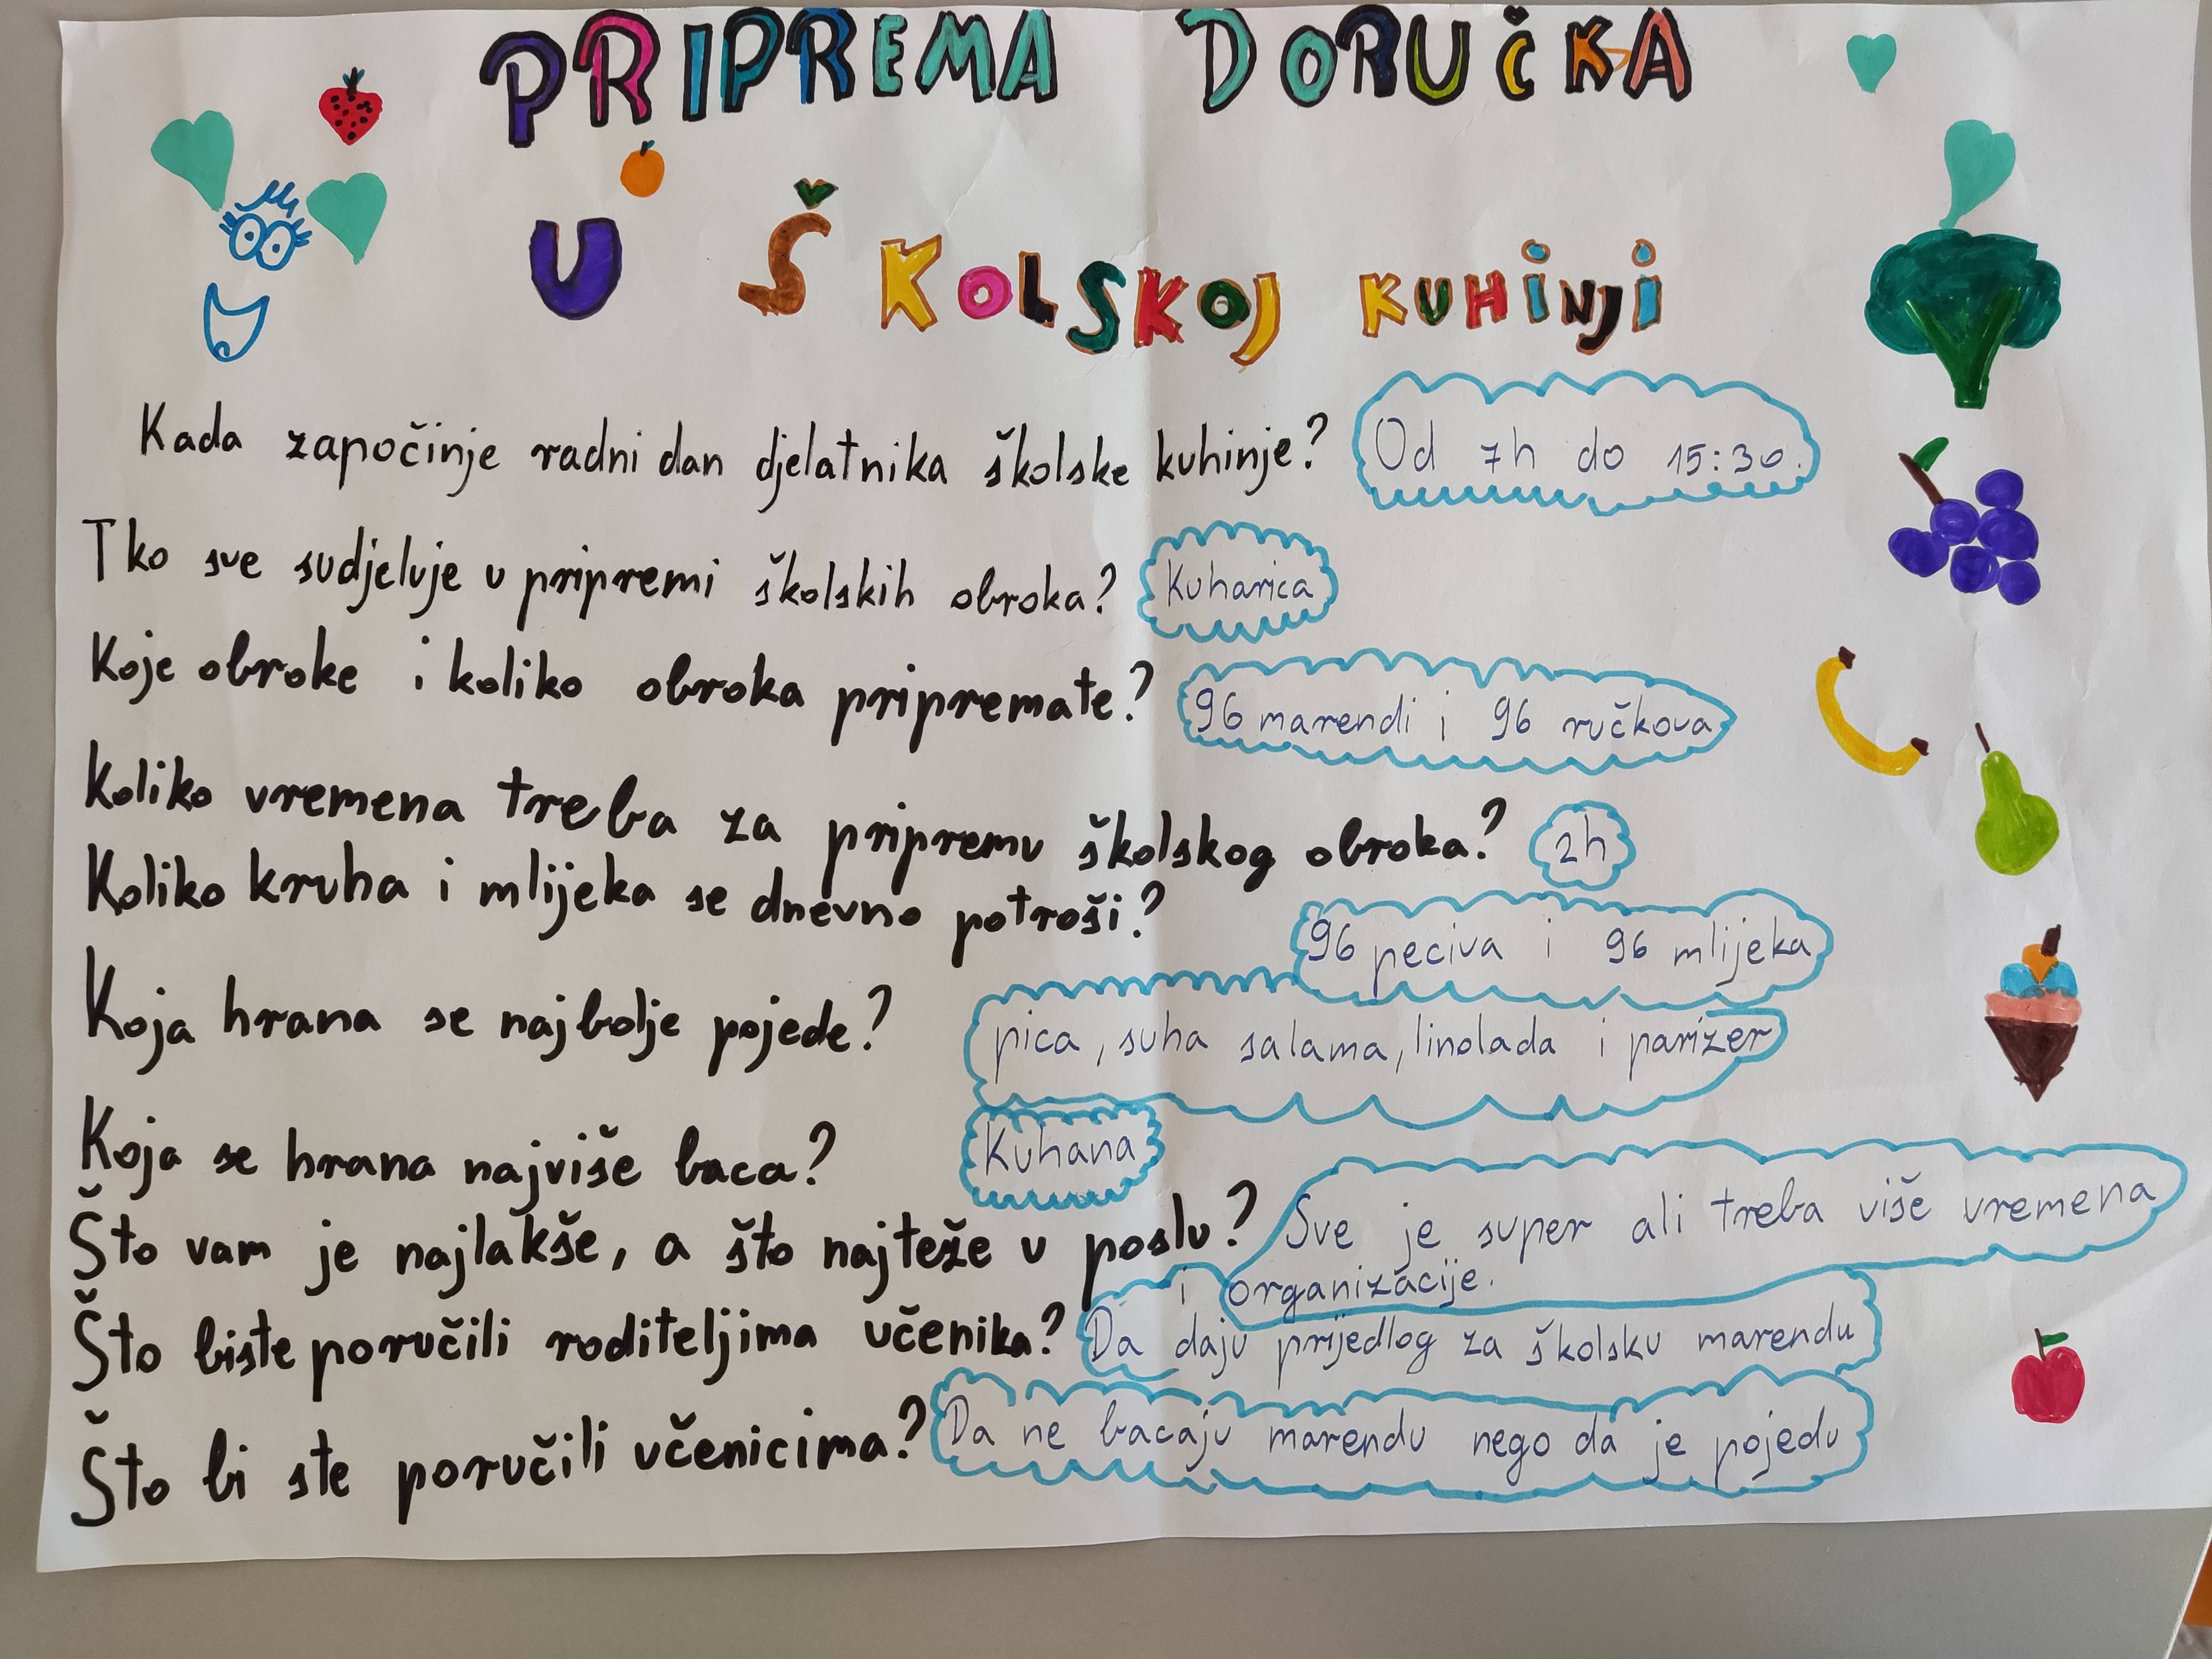 PRIPREMA DORUČKA
U ŠKOLSKOJ KUHINJI
Kada započinje radni dan djelatnika školske kuhinje? Od 7h do 15:30.
Tko sve sudjeluje u pripremi školskih obroka? Kuharica
Koje obroke i koliko obroka pripremate? 96 marendi i 96 ručkova
Koliko vremena treba za pripremu školskog obroka? 2h
Koliko kruha i mlijeka se dnevno potroši?
96 peciva i 96 mlijeka
Koja hrana se najbolje pojede? pica, suha salama, linolada i parizer
Koja se hrana najviše baca? Kuhana
Što vam je najlakše, a što najteže u poslu? Sve je super ali treba više vremena
i organizacije.
Što biste poručili roditeljima učenika? Da daju prijedlog za školsku marendu
Što bi ste poručili učenicima? Da ne bacaju marendu nego da je pojedu